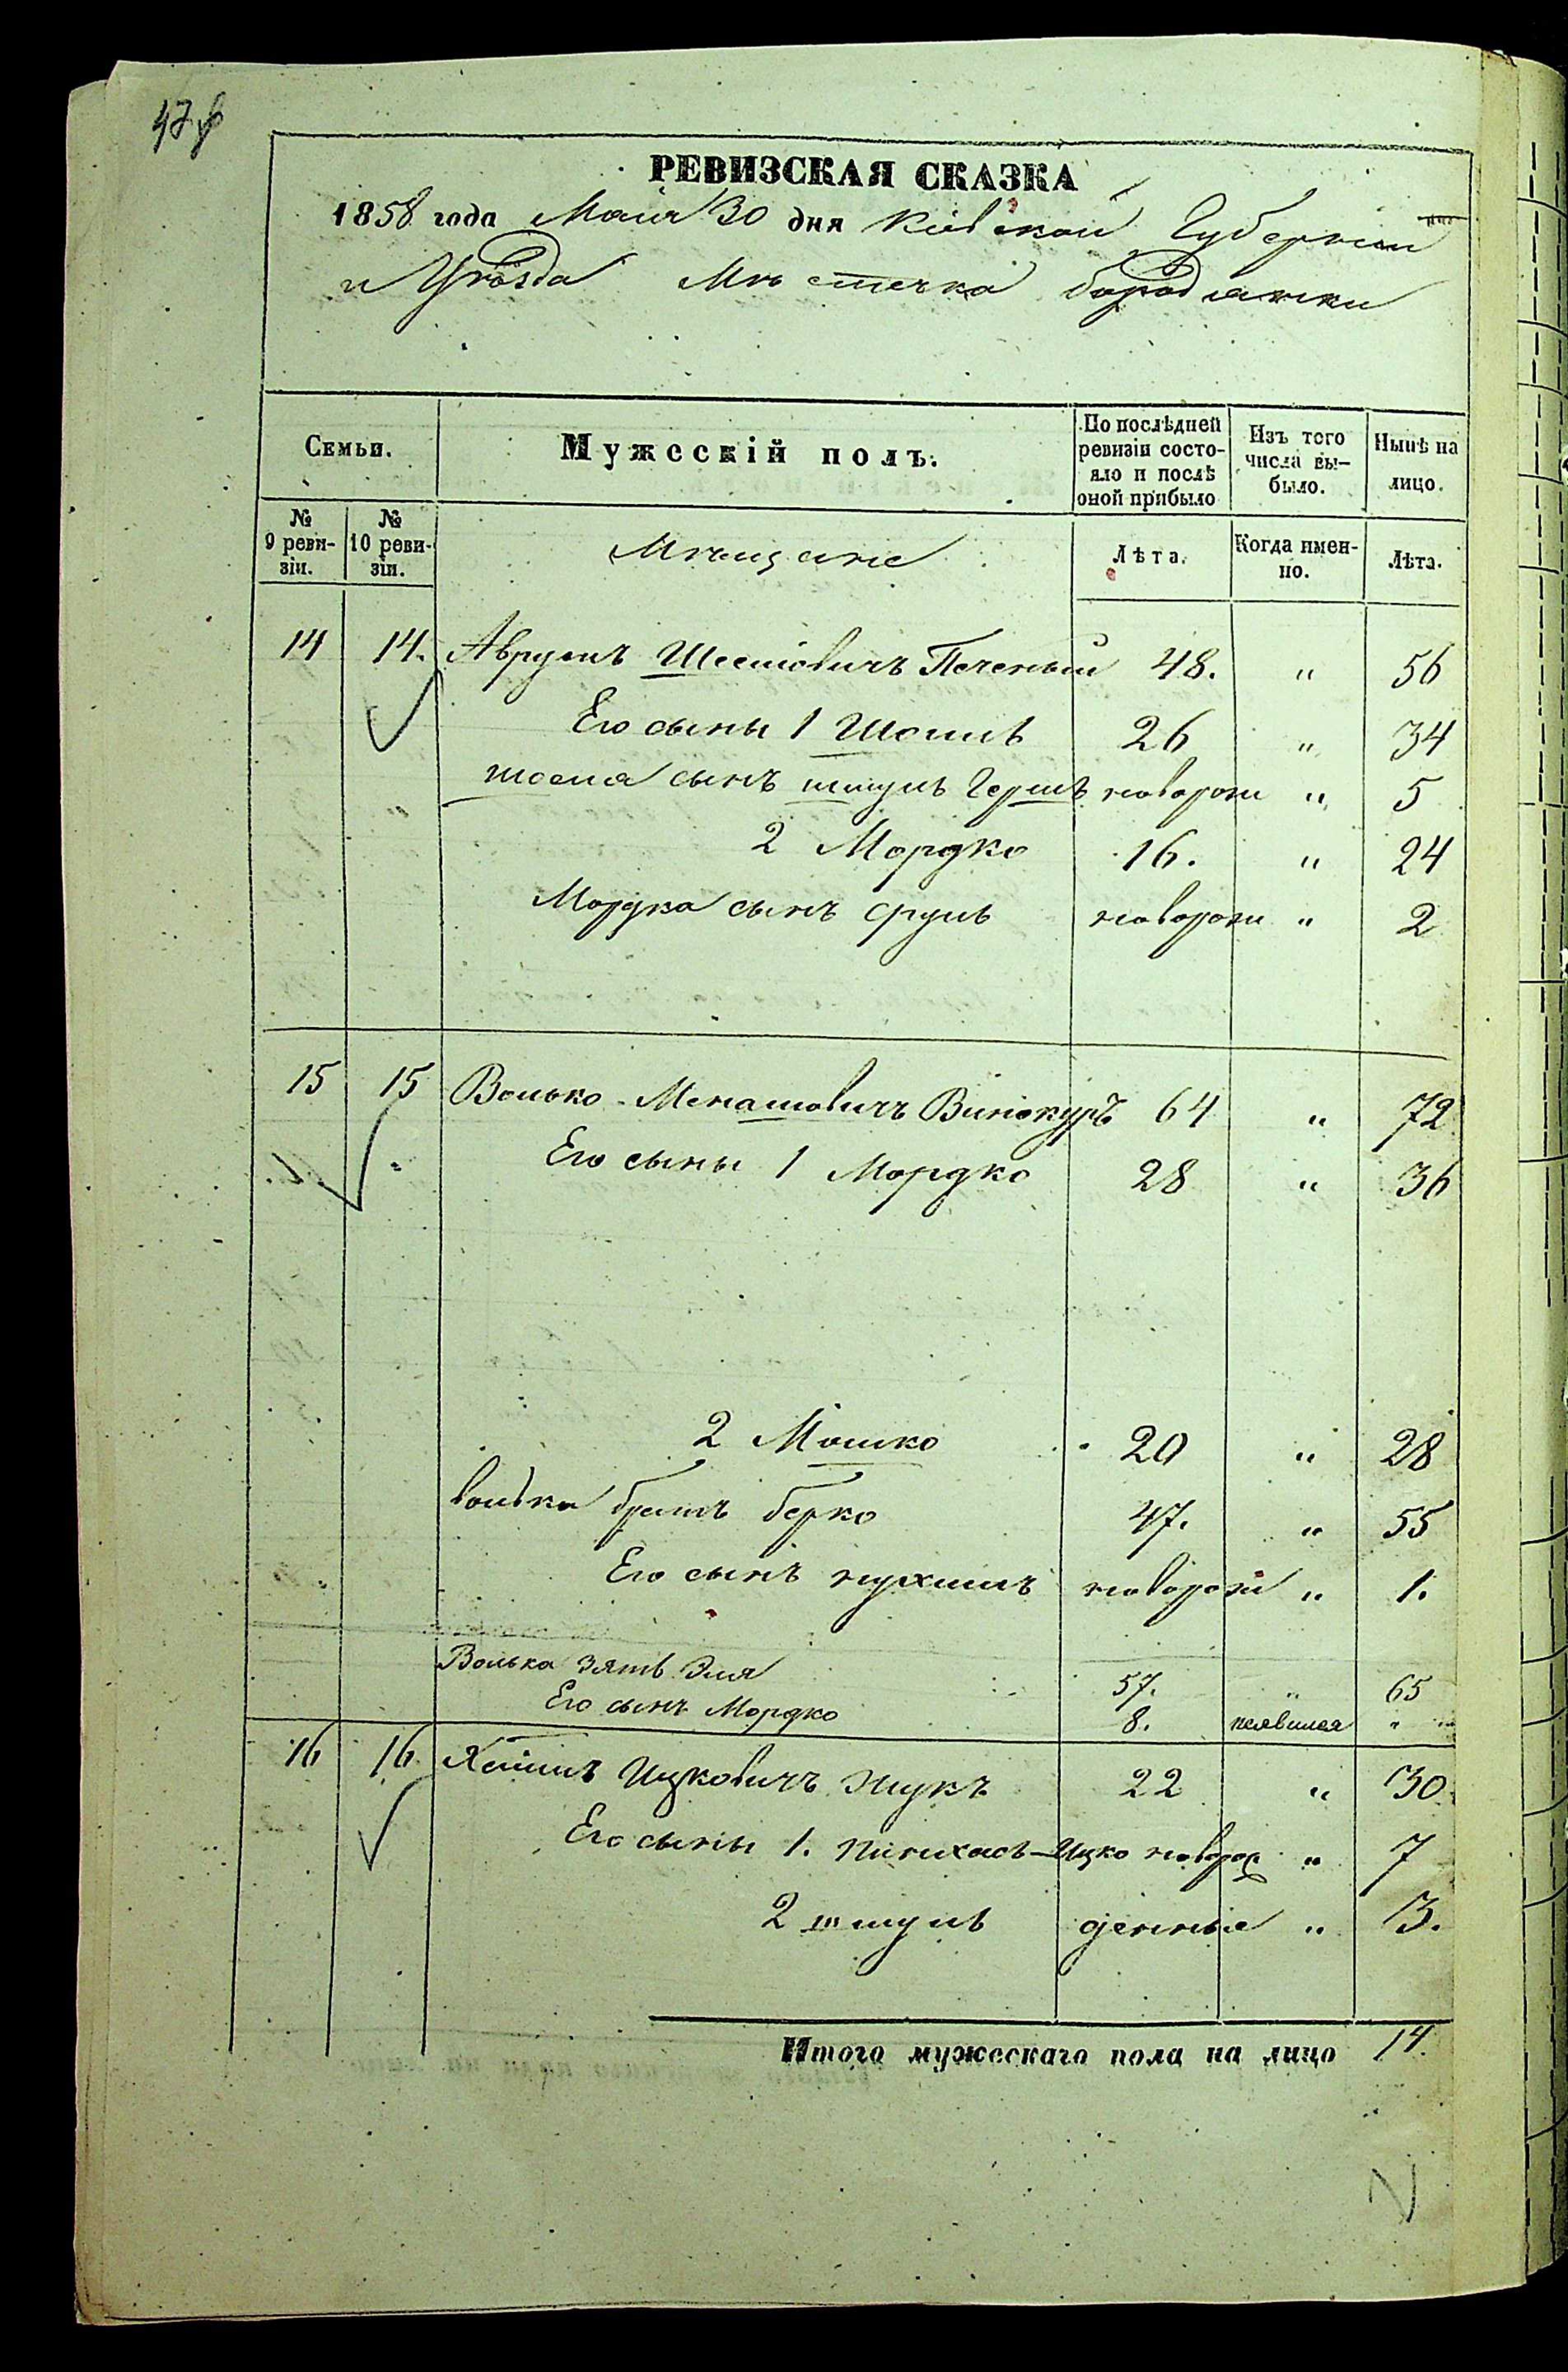 РЕВИЗСКАЯ СКАЗКА
1858 года Маія 30 дня Кіевской Губерніи
и Уѣзда Мѣстечка Бородянки
Семьи. Мужескій полъ. По послѣдней ревизіи состояло и послѣ оной прибыло Изъ того числа вы-было. Нынѣ на лицо.
№ 9 реви-зіи. № 10 реви-зіи. Мѣщане Лѣта. Когда имен-но. Лѣта.
14 14. Аврумъ Печеный 48. " 56
Его сыны 1 26 " 34
сынъ шмуль Гершъ новорож " 5
2 Мордко 16. " 24
Мордка сынъ сруль новорож " 2
15 15 Волько Менашовичъ Винокуръ 64 " 72
Его сыны 1 Мордко 28 " 36
2 Мошко 20 " 28
волька братъ берко 47. " 55
Его сынъ нухимъ новорож " 1.
Волька зять Эля 57. " 65
Его сынъ Мордко 8. неявился "
16 16 Хаимъ Ицковичъ Жукъ 22 " 30
Его сыны 1. Пинихасъ-Ицко новорож " 7
2 шмуль денные " 3.
Итого мужескаго пола на лицо 14.